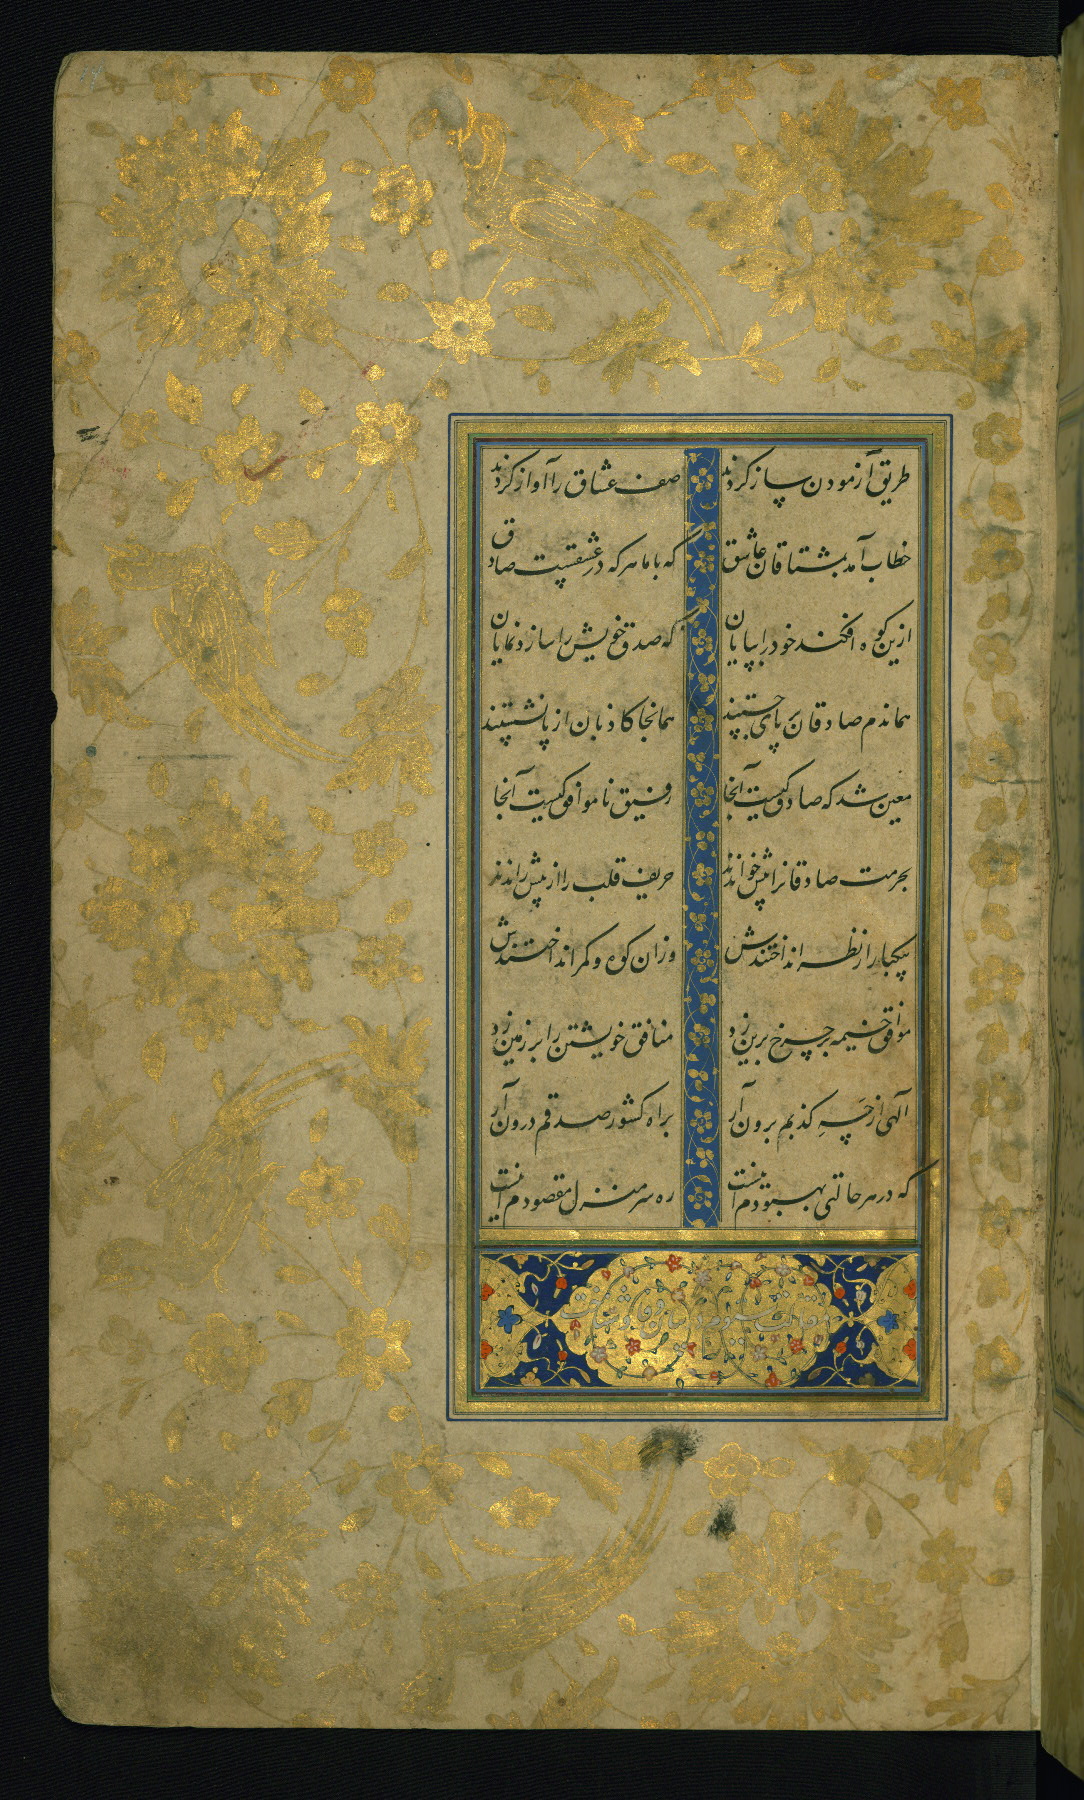 طریق آزمودن ساز کردند صف عشاق را آواز کردند
خطاب آمد بمشتاقان عاشق که با ما هر که در عشقست صادق
ازین کوه افکند خود را بپایان که صدق خویش را سازد نمایان
هماندم صادقان بر پای جستند همانجا کاذبان از پا نشستند
معین شد که صادق کیست آنجا رفیق ناموافق کیست آنجا
بحرمت صادقانرا پیش خواندند حریف قلب را از پیش راندند
بیکبار از نظر انداختندش وزان کوه و کمر انداختندش
موافق خیمه بر چرخ برین زد منافق خویشتن را بر زمین زد
الهی از چه کذبم برون آر براه کشور صدقم درون آر
که در هر حالتی بهبودم اینست ره سرمنزل مقصودم اینست